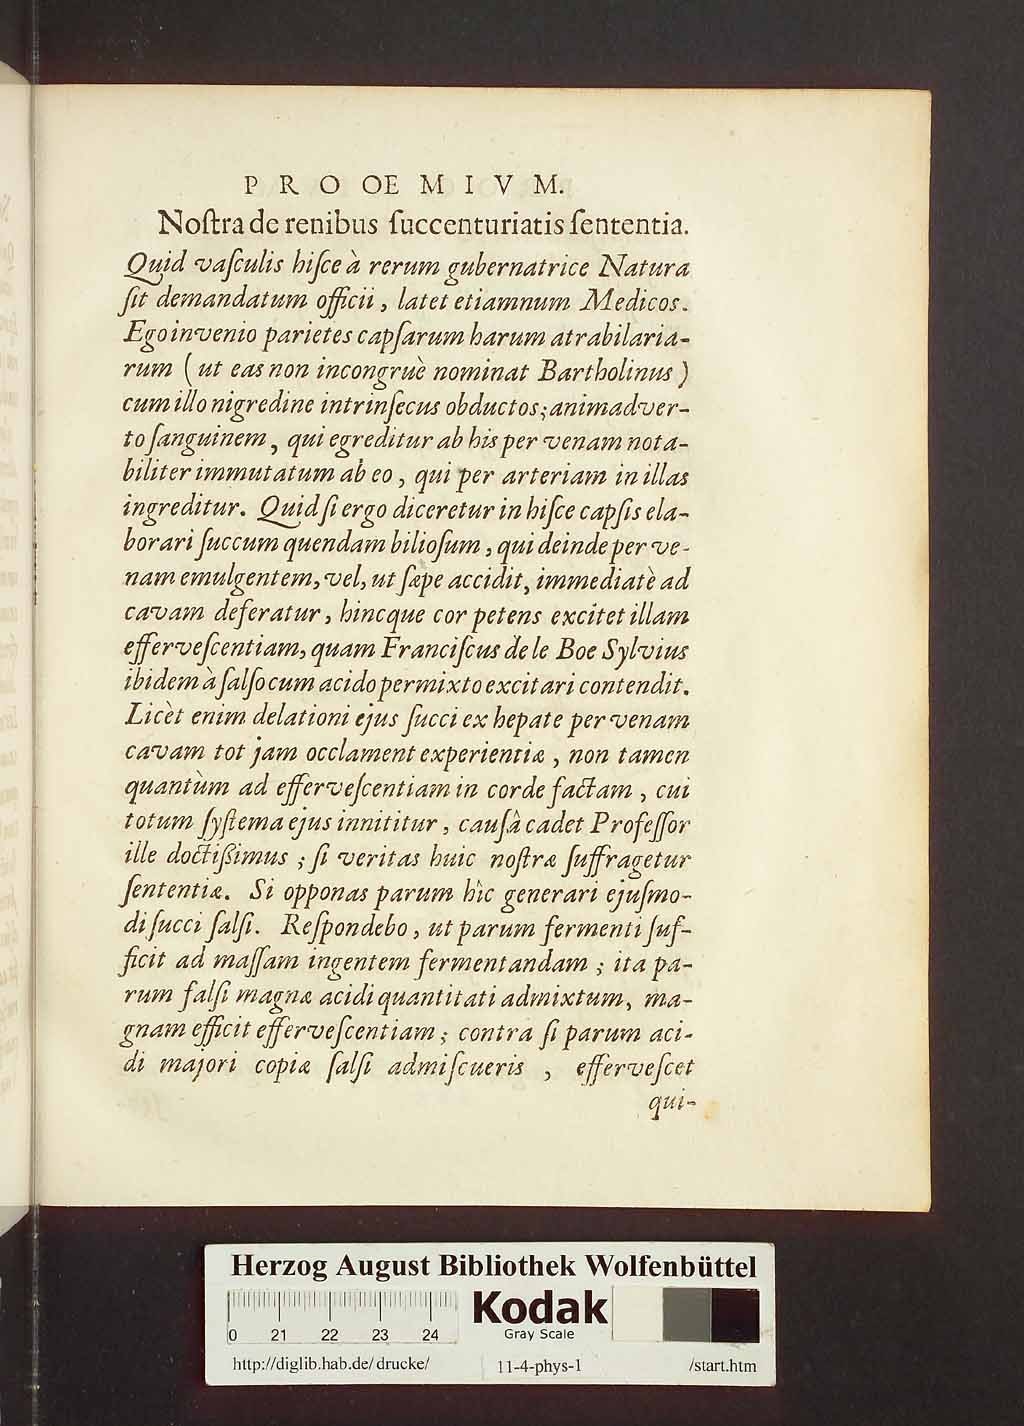 PROOEMIVM.
Noſtra de renibus ſuccenturiatis ſententia.
Quid vaſculis hiſce à rerum gubernatrice Natura
ſit demandatum officii, latet etiamnum Medicos.
Ego invenio parietes capſarum harum atrabilaria-
rum (ut eas non incongruè nominat Bartholinus)
cum illo nigredine intrinſecus obductos; animadver-
to ſanguinem, qui egreditur ab his per venam nota-
biliter immutatum ab eo, qui per arteriam in illas
ingreditur. Quid ſi ergo diceretur in hiſce capſis ela-
borari ſuccum quendam bilioſum, qui deinde per ve-
nam emulgentem, vel, ut ſæpe accidit, immediatè ad
cavam deferatur, hincque cor petens excitet illam
efferveſcentiam, quam Franciſcus de le Boe Sylvius
ibidem à ſalſo cum acido permixto excitari contendit.
Licèt enim delationi ejus ſucci ex hepate per venam
cavam tot jam occlament experientiæ, non tamen
quantùm ad efferveſcentiam in corde factam, cui
totum ſyſtema ejus innititur, cauſâ cadet Profeſſor
ille doctiſſimus; ſi veritas huic noſtræ ſuffragetur
ſententiæ. Si opponas parum hîc generari ejuſmo-
di ſucci ſalſi. Reſpondebo, ut parum fermenti ſuf-
ficit ad maſſam ingentem fermentandam; ita pa-
rum ſalſi magnæ acidi quantitati admixtum, ma-
gnam efficit efferveſcentiam; contra ſi parum aci-
di majori copiæ ſalſi admiſcueris, efferveſcet
qui-
Herzog August Bibliothek Wolfenbüttel
0 21 22 23 24
Kodak
Gray Scale
http://diglib.hab.de/drucke/ 11-4-phys-1 /start.htm